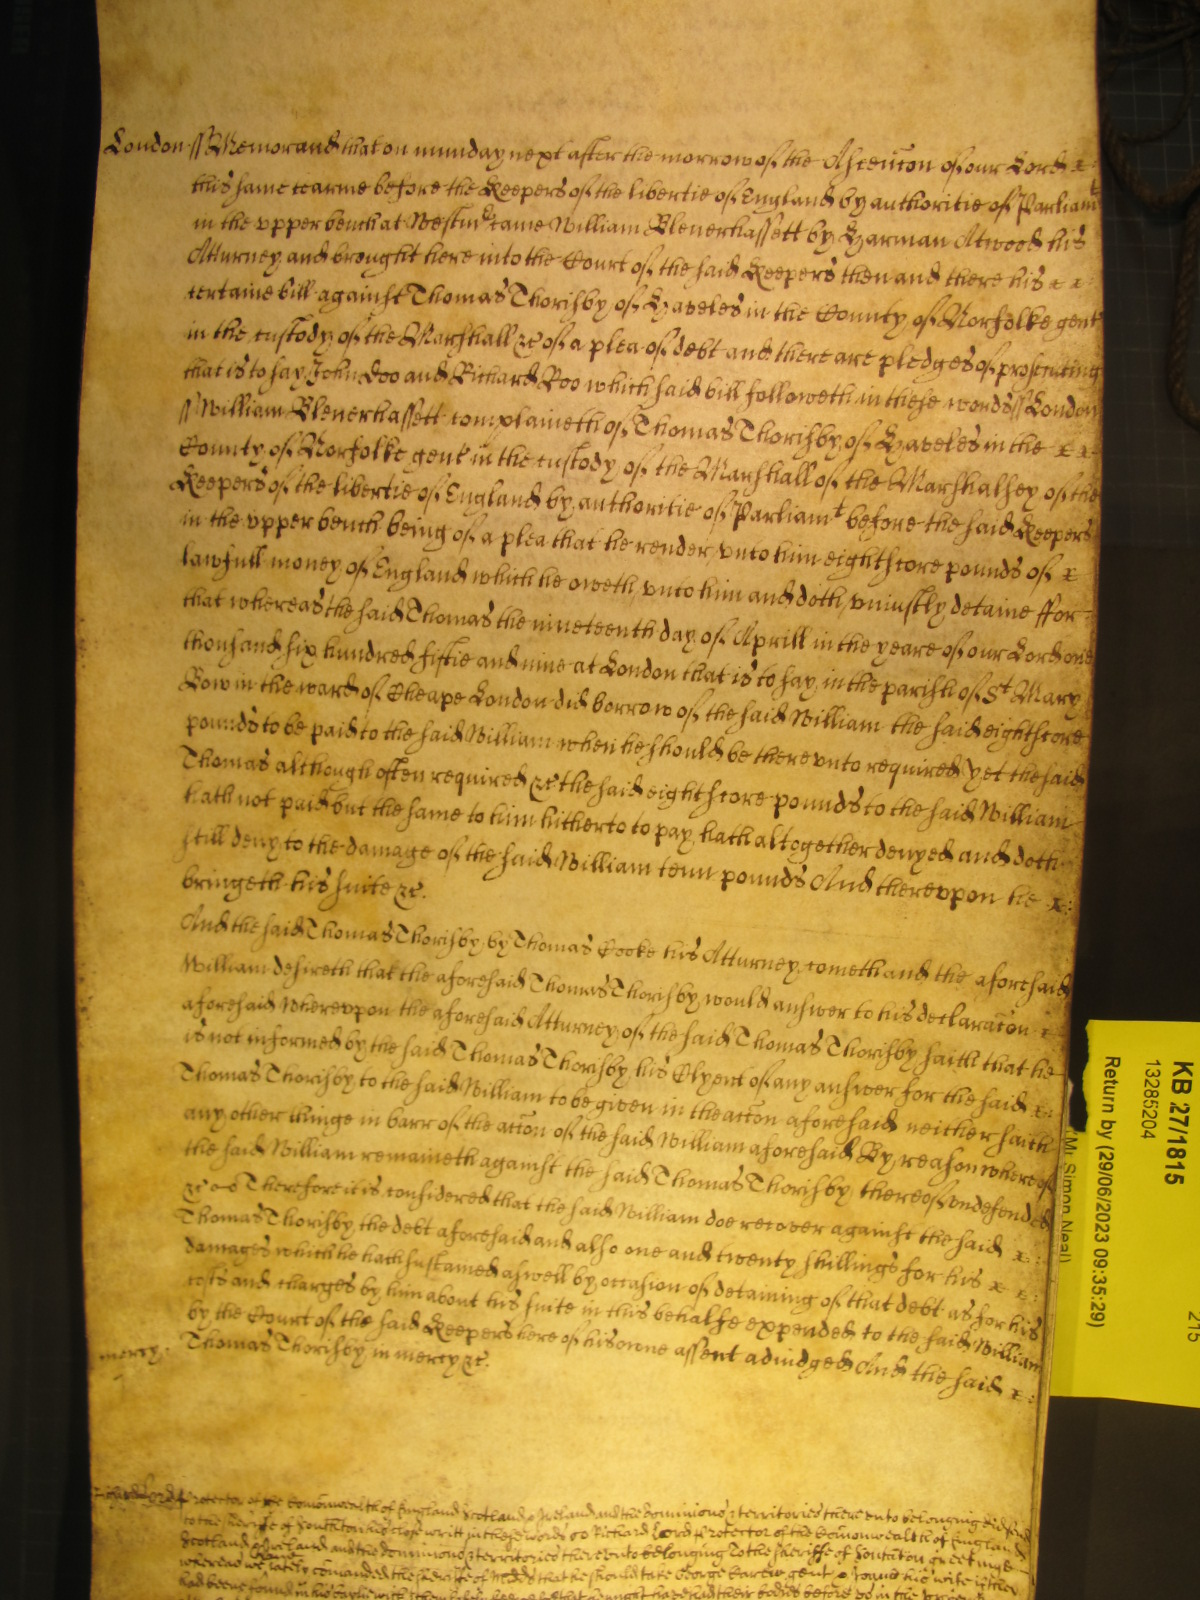 London ss Memorand that on munday next after the morrow of the Ascencon of our Lord x
this same tearme before the Keepers of the libertie of England by authoritie of Parliamt
in the vpper bench at Westmr came William Blenerhassett by Harman Atwood his
Atturney and brought here into the Court of the said Keepers then and there his x x
certaine bill against Thomas Thorisby of Haveles in the County of Norfolke gent
in the custody of the Marshall &c of a plea of debt and there are pledges of prosecuting
that is to say John Doo and Richard Roo which said bill followeth in these words ss London
ss William Blenerhassett complaineth of Thomas Thorisby of Haveles in the x x
County of Norfolke gent in the custody of the Marshall of the Marshalsey of the
Keepers of the libertie of England by authoritie of Parliamt before the said Keepers
in the vpper bench being of a plea that he render vnto him eightscore pounds of x
lawfull money of England which he oweth vnto him and doth vniustly detaine ffor
that whereas the said Thomas the nineteenth day of Aprill in the yeare of our Lord one
thousand six hundred fiftie and nine at London that is to say in the parish of St Mary
Bow in the ward of Cheape London did borrow of the said William the said eightscore
pounds to be paid to the said William when he should be therevnto required yet the said
Thomas although often required &c the said eightscore pounds to the said William
hath not paid but the same to him hitherto to pay hath altogether denyed and doth
still deny to the damage of the said William tenn pounds And therevpon he x
bringeth his suite &c.
And the said Thomas Thorisby by Thomas Cooke his Atturney cometh and the aforesaid
William desireth that the aforesaid Thomas Thorisby would answer to his declaracon x
aforesaid Wherevpon the aforesaid Atturney of the said Thomas Thorisby saith that he
is not informed by the said Thomas Thorisby his Clyent of any answer for the said x
Thomas Thorisby to the said William to be given in the accon aforesaid neither saith
any other thinge in barr of the accon of the said William aforesaid By reason whereof
the said William remaineth against the said Thomas Thorisby thereof vndefended
&c Therefore it is considered that the said William doe recover against the said x
Thomas Thorisby the debt aforesaid and also one and twenty shillings for his x x
damages which he hath sustained aswell by occasion of detaining of that debt as for his
costs and charges by him about his suite in this behalfe expended to the said William
by the Court of the said Keepers here of his owne assent adiudged And the said x
mercy. Thomas Thorisby in mercy &c.
Richard Lord Protector of the Comonwealth of England Scotland & Ireland and the dominions & territories therevnto belonging did send
to the sheriffe of Southton his close writt in these words ss Richard Lord Protector of the Comonwealth of England
Scotland & Ireland and the dominions & territories therevnto belonging To the sheriffe of Southton greeting
whereas we lately comanded the sheriffe of that he should take George Carew gent & Joane his wife if they
had beene found in his
KB 27/1815
13285204
Return by (29/06/2023 09:35:29)
(Mr Simon Neal)
215